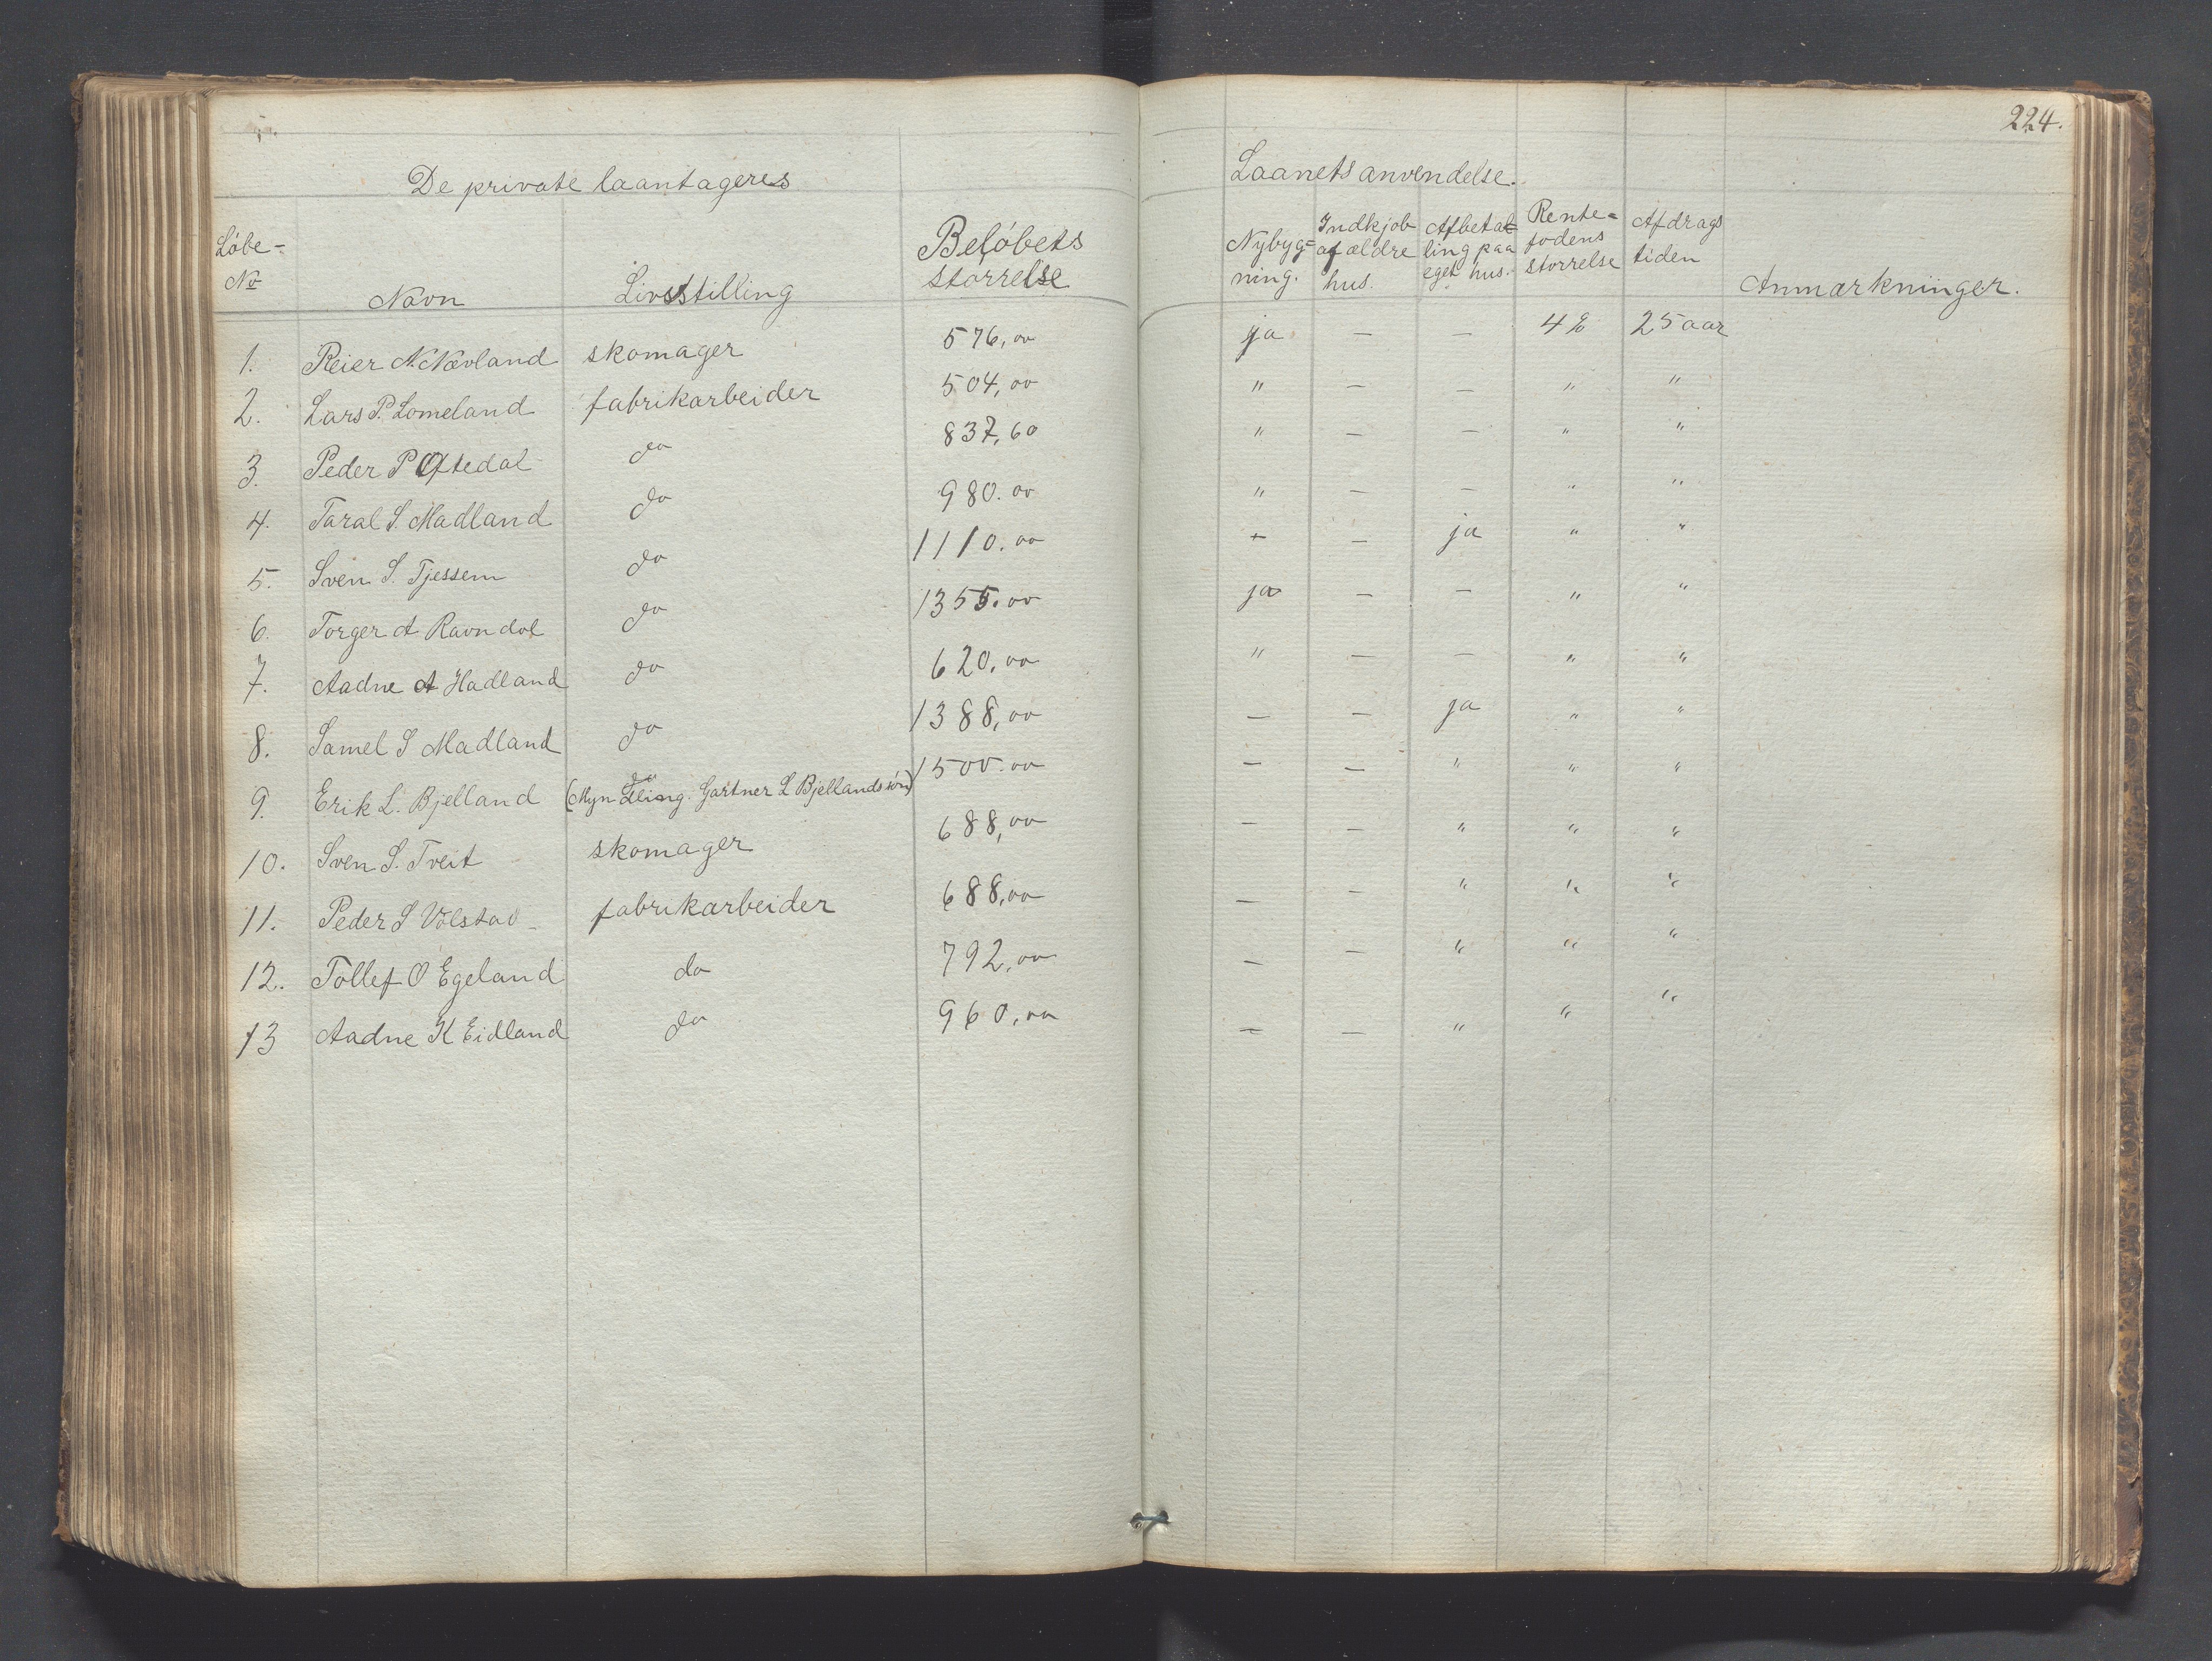 224.
De private laantageres
Laanets anvendelse.
Löbe-No Navn Livsstilling Belöbets störrelse Nybyg=ning. Indkjöb af ældre hus. Afbetal=ling paa eget hus. Rente=fodens störrelse Afdrags tiden Anmærkninger.
1. Reier N. Nævland skomager 576,00 ja — — 4% 25 aar
2. Lars P. Lomeland fabrikarbeider 504,00 " — — " "
3. Peder P Oftedal do 837,60 " — — " "
4. Taral S. Madland do 980.00 " — — " "
5. Sven S. Tjessem do 1110.00 — — ja " "
6. Torger A Ravndal do 1355.00 ja — — " "
7. Aadne A Hadland do 620,00 " — — " "
8. Samel S Madland do 1388,00 — — ja " "
9. Erik L. Bjelland do (Myndling. Gartner L Bjellands sön) 1500.00 — — " " "
10. Sven S. Tveit skomager 688,00 — — " " "
11. Peder S Valstad fabrikarbeider 688,00 — — " " "
12. Tollef O Egeland do 792,00 — — " " "
13 Aadne K Eidland do 960,00 — — " " "